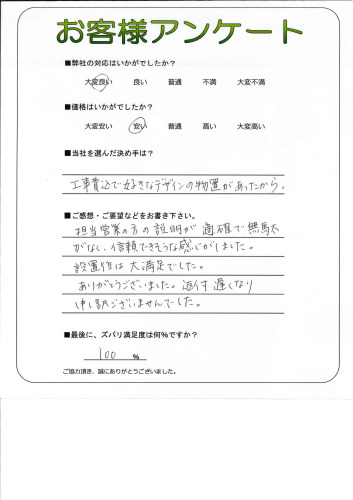 お客様アンケート
■弊社の対応はいかがでしたか?
大変良い 良い 普通 不満 大変不満
■価格はいかがですか?
大変安い 安い 普通 高い 大変高い
■当社を選んだ決め手は?
工事費込で好きなデザインの物置があったから。
■ご感想・ご要望などをお書き下さい。
担当営業の方の説明が適確で無駄
がなく、信頼できそうな感じがしました。
設置後は大満足でした。
ありがとうございました。返付遅くなり
申し訳ございませんでした。
■最後に、ズバリ満足度は何%ですか?
100 %
ご協力頂き、誠にありがとうございました。